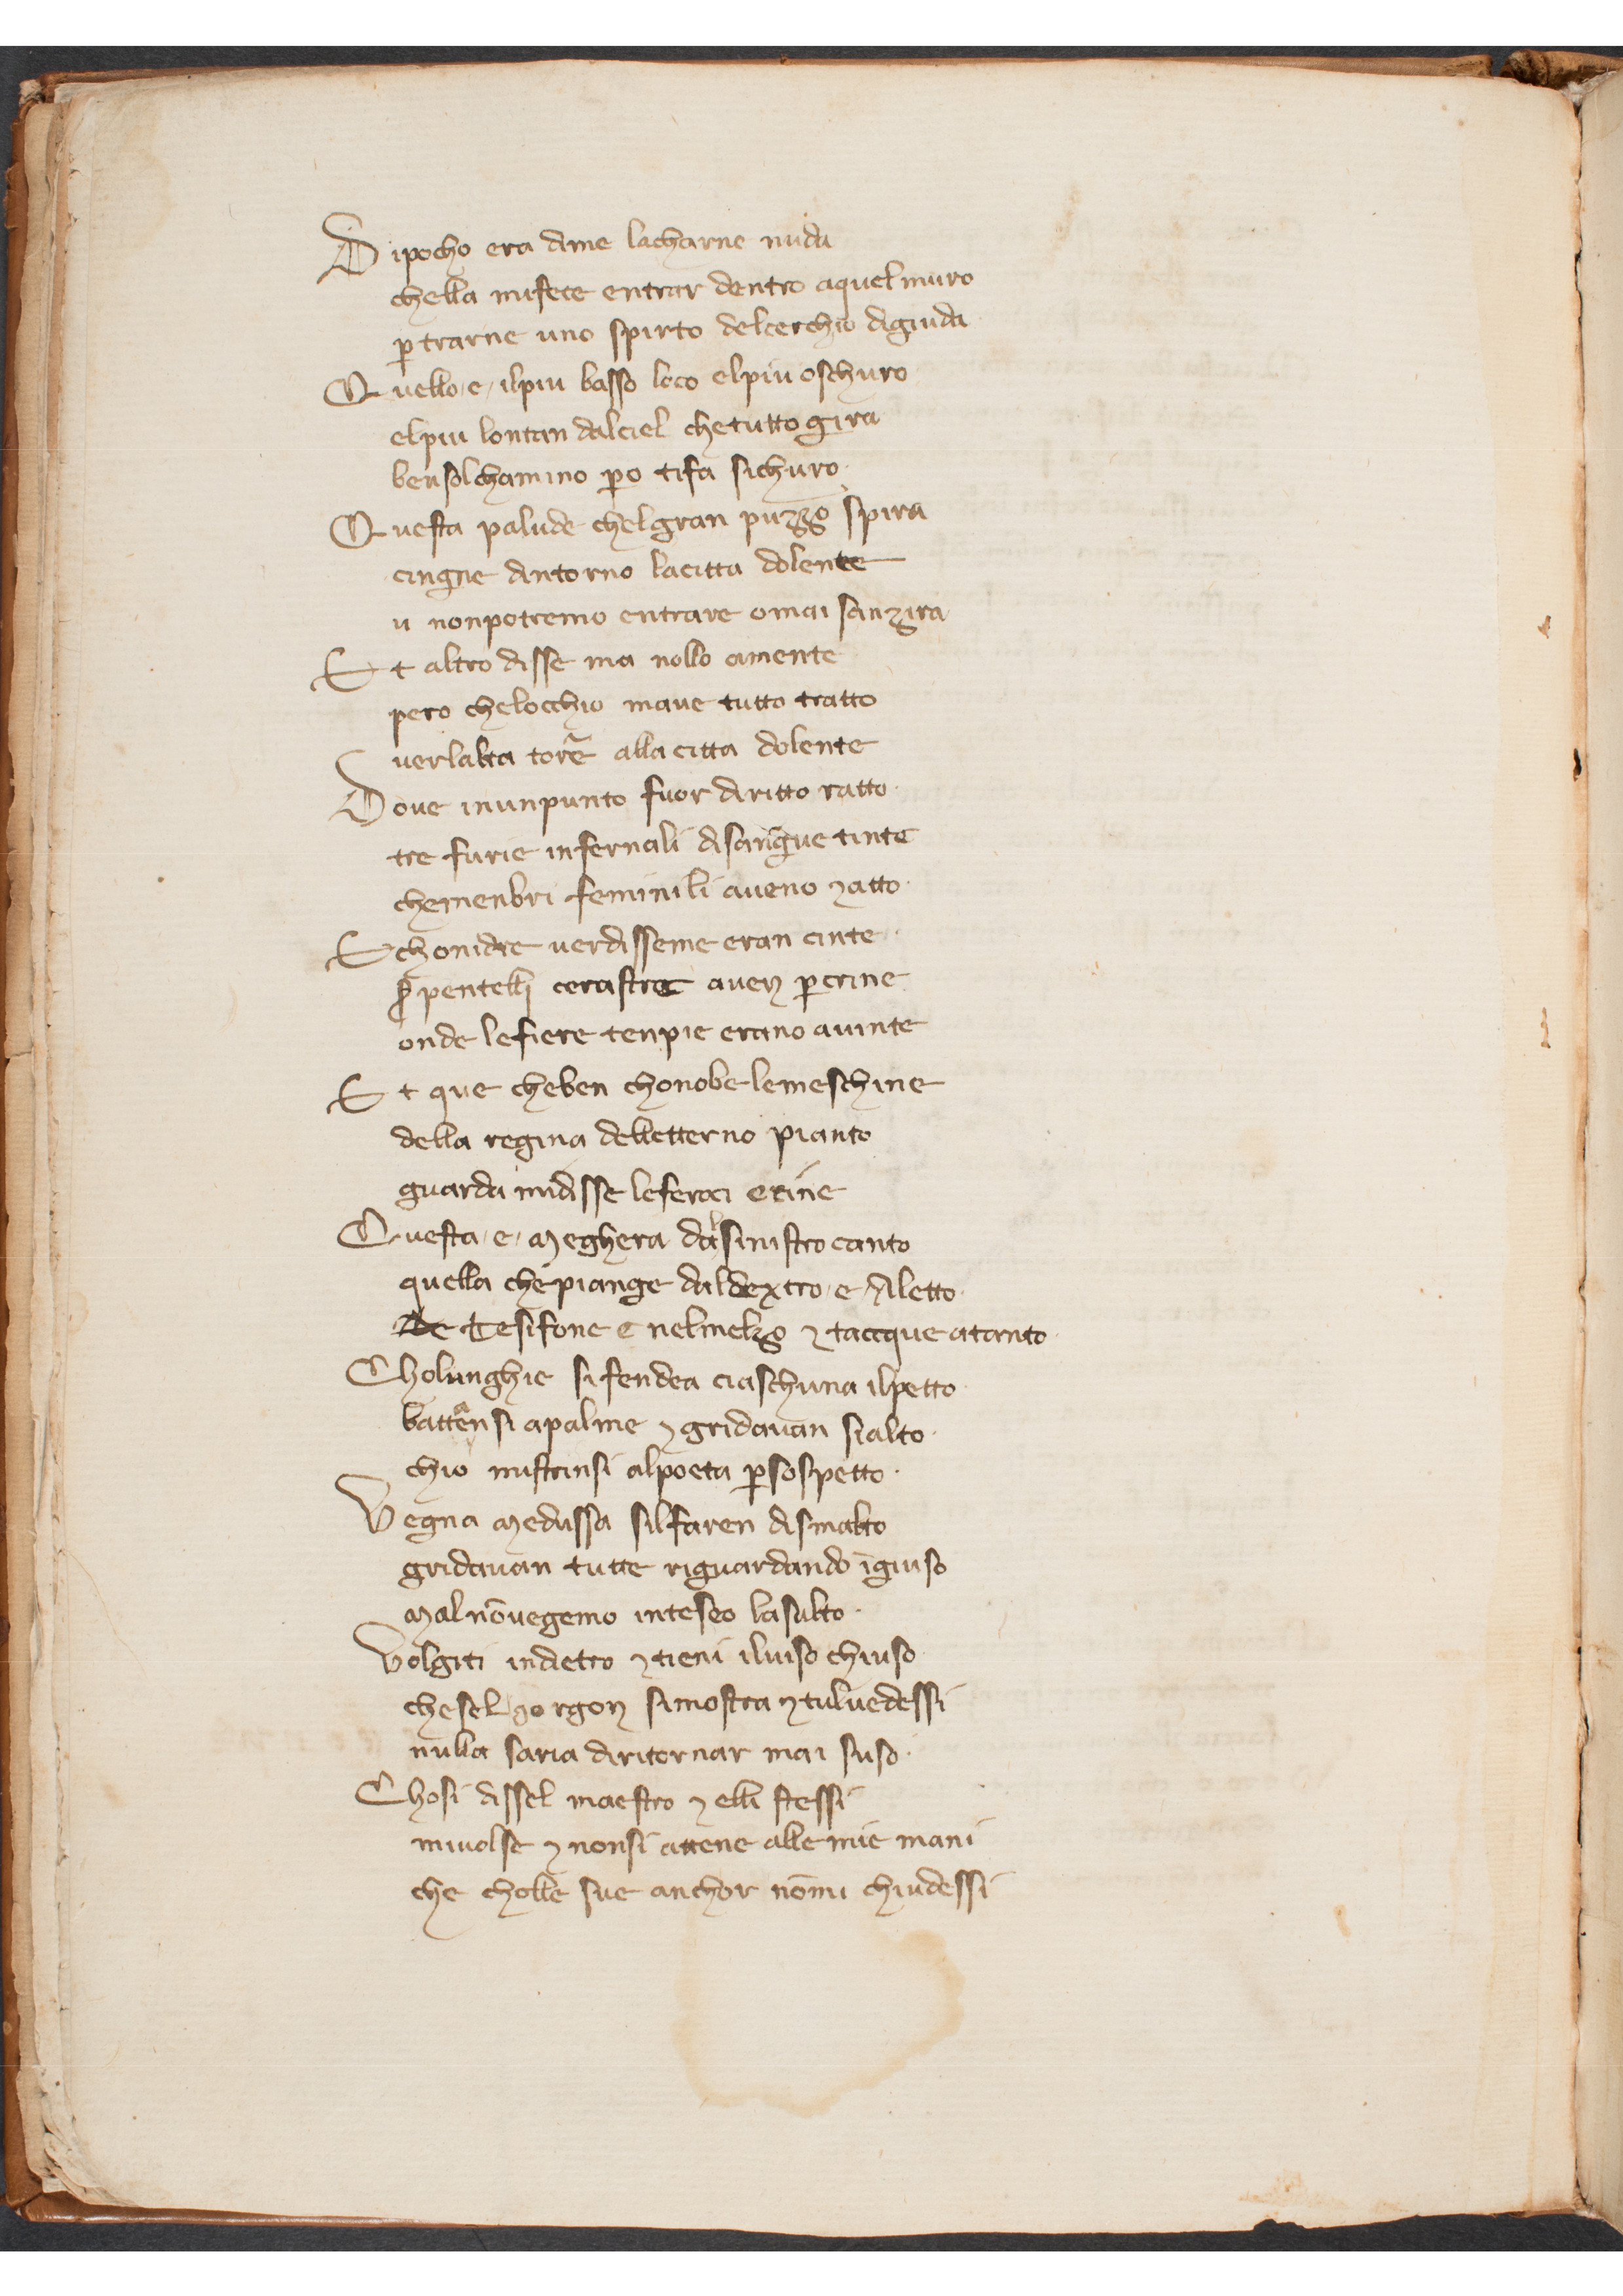 Dipocho era dime lacharne nuda
chella mifece entrar dentro aquel muro
ꝑ trarne uno spirto delcerchio digiuda
Quello e ilpiu basso loco elpiu oschuro
elpiu lontan dalciel chetutto gira
ben solchamino ꝑo tifa sichuro
Questa palude chelgran puzzo spira
cingne dintorno lacitta dolente
u nonpotremo entrare omai sanzira
Et altro disse ma nollo amente
pero chelocchio mave tutto tratto
verlalta torẽ alla citta dolente
Dove inunpunto fuor diritto ratto
tre furie infernali disangue tinte
chemenbri feminili aveno ⁊ atto
E chonidre verdisseme eran cinte
ẜpentelli cerastre aven ꝑ crine
onde lefiere tenpie erano avinte
Et que cheben chonobe lemeschine
della regina delletterno pianto
guarda midisse leferoci erine
Questa e Meghera dal sinistro canto
quella che piange daldextro e Aletto
Tesifone e nelmelzo ⁊ taccque atanto
Cholunghie sifendea ciaschuna ilpetto
battẽansi apalme ⁊ gridavan sialto
chio mistrinsi alpoeta ꝑ sospetto
Vegna Medussa silfaren dismalto
gridavan tutte riguardando ĩgiuso
Mal nõvegemo inteseo lasalto
Volgiti indietro ⁊ tieni ilviso chiuso
chesel gorgon simostra ⁊ tulvedessi
nulla saria diritornar mai suso
Chosi dissel maestro ⁊ elli stessi
mivolse ⁊ nonsi attene alle mie mani
che cholle sue anchor nõmi chiudessi